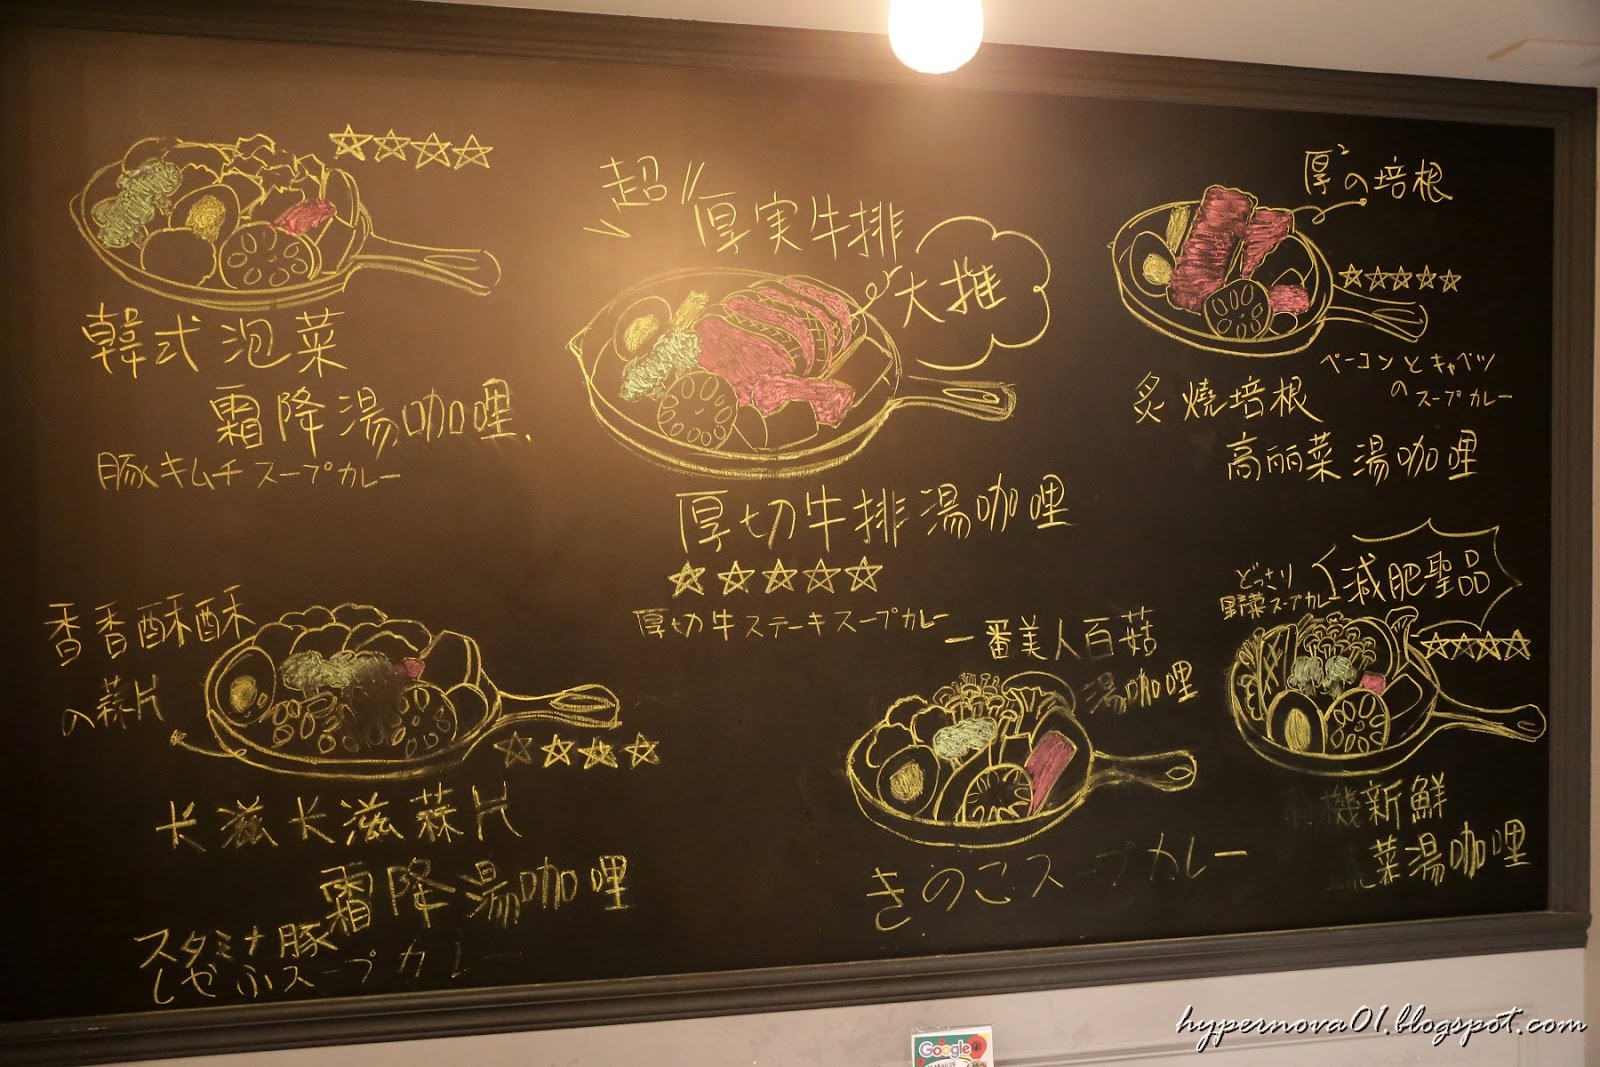 韓式泡菜
霜降湯咖哩
豚キムチスープカレー
超
厚実牛排
大推
厚切牛排湯咖哩
厚切牛ステーキスープカレー
厚²の培根
炙燒培根
ベーコンとキャベツ
の
スープカレー
高丽菜湯咖哩
香香酥酥
の蒜片
卡滋卡滋蒜片
霜降湯咖哩
スタミナ豚
しゃぶスープカレー
一番美人百菇
湯咖哩
きのこスープカレー
どっさり
野菜スープカレー
減肥聖品
有機新鮮
菜湯咖哩
Google
hypernova01.blogspot.com